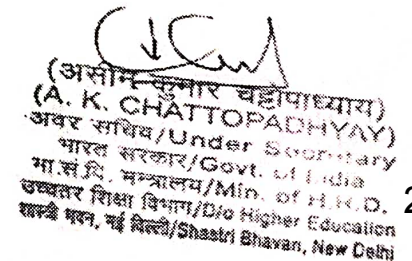 (असीम कुमार चट्टोपाध्याय)
(A. K. CHATTOPADHYAY)
अवर सचिव/Under Secretary
भारत सरकार/Govt. of India
मा.सं.वि. मन्त्रालय/Min. of H.R.D.
उच्चतर शिक्षा विभाग/D/o Higher Education
शास्त्री भवन, नई दिल्ली/Shastri Bhavan, New Delhi
2